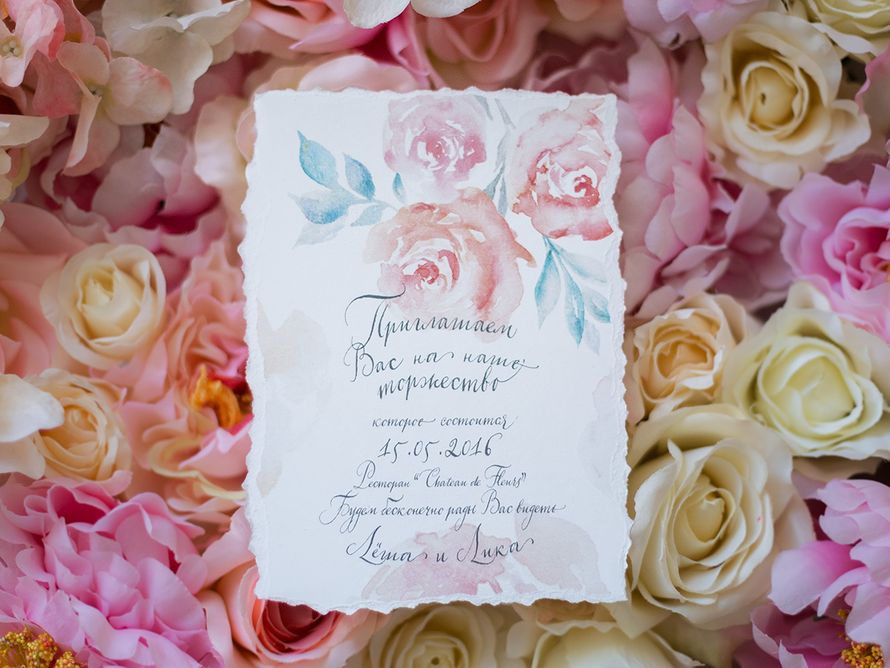 Приглашаем
Вас на наше
торжество
которое состоится
15.05.2016
Ресторан "Chateau de Fleurs"
Будем бесконечно рады Вас видеть
Лёша и Лика